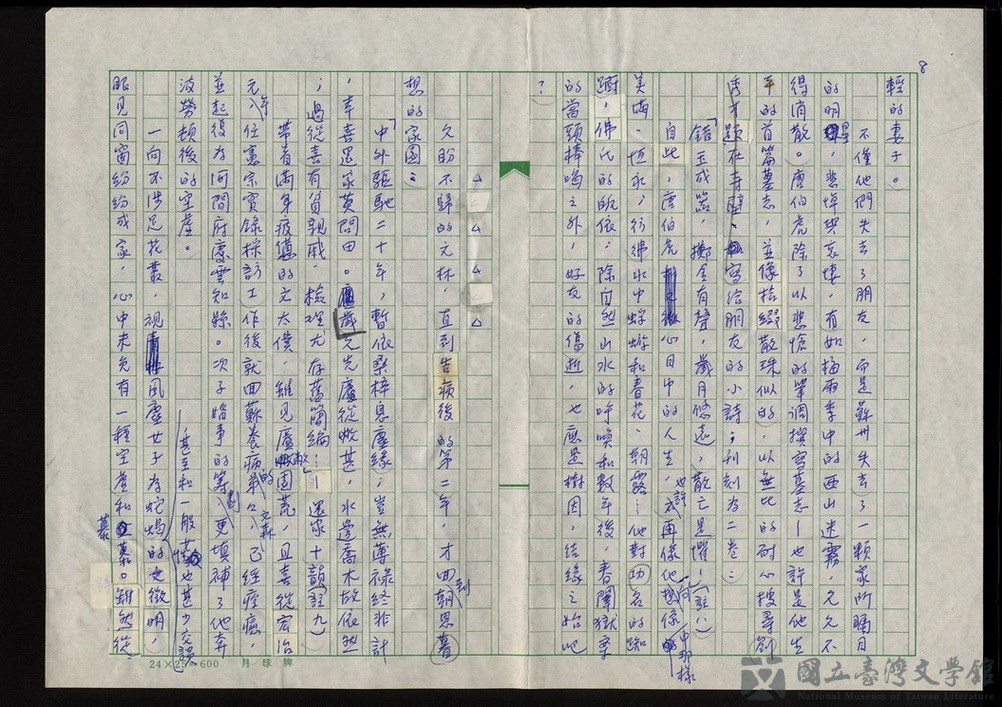 8
輕的妻子。
不僅他們失去了朋友，而是蘇州失去了一顆眾所矚目
的明星，悲悼與哀悽，有如梅雨季中的西山迷霧，久久不
得消散。唐伯虎除了以悲愴的筆調撰寫墓志—也許是他生
平的首篇墓志，並像拾綴散珠似的，以無比的耐心搜尋劉
秀才題在寺壁、寫給朋友的小詩；刊刻為二卷：
「錯玉成器，擲金有聲，歲月悠遠，散亡是懼！」（註八）
自此，唐伯虎心目中的人生，也許再像他想像中那樣
美滿、恆永；彷彿水中蜉蝣和春花、朝露…他對功名的踟
躕，佛氏的皈依；除自然山水的呼喚和數年後，春闈獄事
的當頭棒喝之外，好友的傷逝，也應是樹因，結緣之始吧
？
△ △ △ △
久盼不歸的文林，直到告病後的第二年，才回到朝思暮
想的家園：
「中外驅馳二十年，暫依桑梓息塵緣；豈無薄祿終非計
，幸喜還家莫問田。先廬從敝甚，水邊喬木故依然
；過從喜有貧親戚，檢理尤存舊簡編…」—還家十韻（註九）
帶著滿身疲憊的文太僕，雖見廬敝園荒，且喜從弘治
元年任憲宗實錄採訪工作後就回蘇養病的文森，已經痊癒，
並起復為河間府慶雲知縣。次子
波勞頓後的空虛。
一向不涉足花叢，視風塵女子為蛇蠍的文徵明，
甚至和一般也甚少交談
眼見同窗紛紛成家，心中未免有一種空虛和慕。雖然從
24×25=600 月球牌
國立臺灣文學館
National Museum of Taiwan Literature